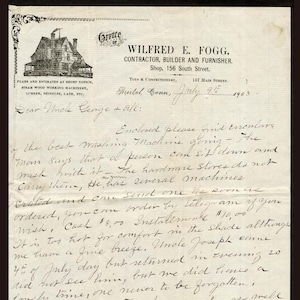 Estate of
WILFRED E. FOGG,
CONTRACTOR, BUILDER AND FURNISHER.
Shop, 156 South Street.
PLANS AND ESTIMATES AT SHORT NOTICE,
STEAM WOOD WORKING MACHINERY,
LUMBER, VENEERS, LATH, ETC.
Bristol, Conn., July 1903
Dear Uncle George & all:
Enclosed please find circulars
the best Washing Machine going. The
Man says that a person can sit down and
wash with it. The hardware stores do not
carry them, He has several machines
and can send one as soon as
ordered, you can order by telegram if you
wish. Cash $9.00 Installments $10.00
It is too hot for comfort in the shade although
we have a fine breeze. Uncle Joseph came
4th of July day but returned in evening so
did not see him, but we did times a
time, one never to be forgotten.